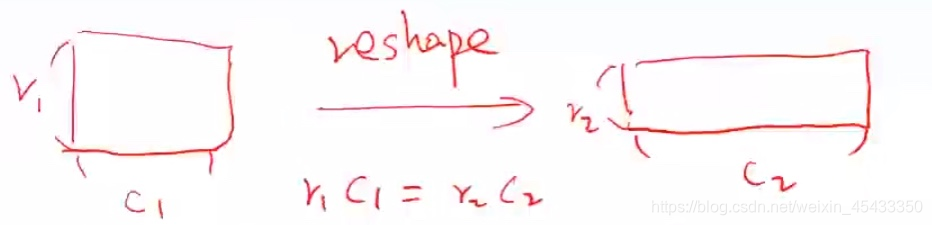 reshape
r₁
r₂
c₁
r₁ c₁ = r₂ c₂
c₂
https://blog.csdn.net/weixin_45433350